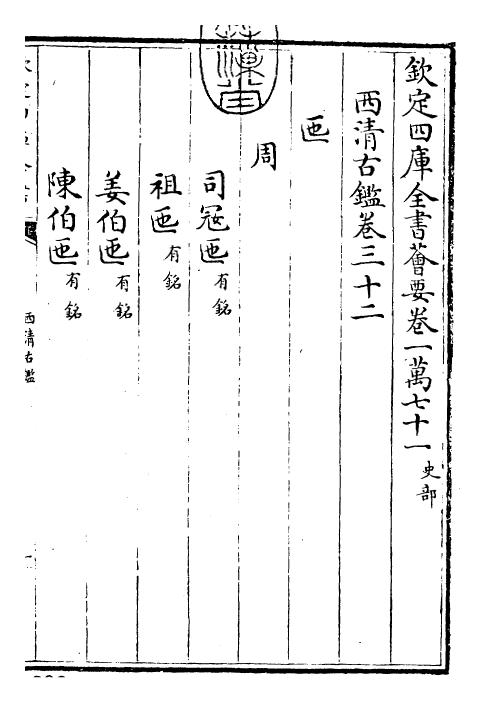 欽定四庫全書薈要卷一萬七十一 史部
西清古鑑卷三十二
匜
周
司寇匜 有銘
祖匜 有銘
姜伯匜 有銘
陳伯匜 有銘
西清古鑑